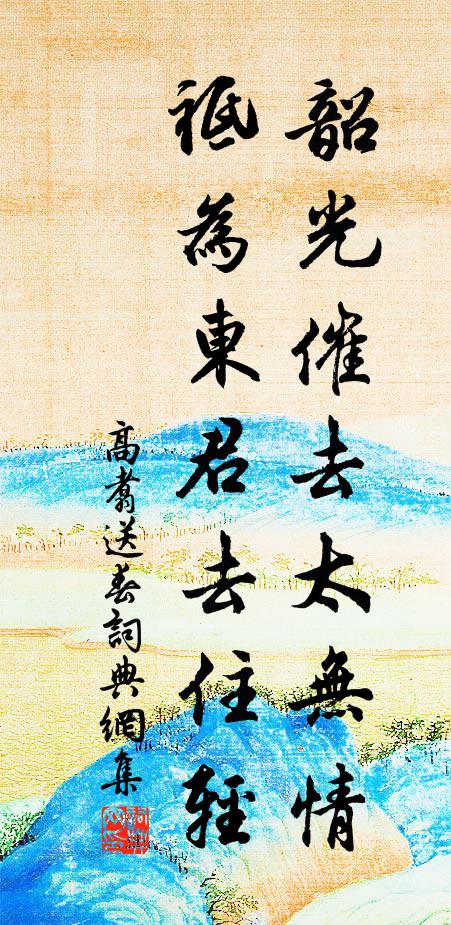 韶光催去太無情
祗為東君去住輕
高翥送春詞典網集